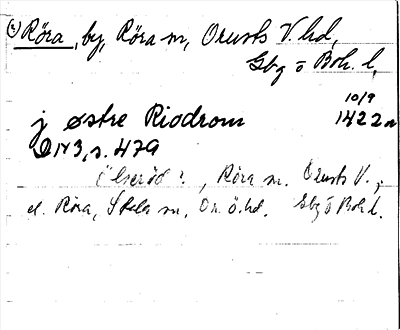 Röra, by, Röra sn, Orusts V. hd,
Gbg o Boh. l.
10/9
j østre Riodrom 1422
DN 3, s. 479
Röra sn. Orusts V.,
el. Röra, Stala sn, Or. ö. hd. Gbg o Boh l.